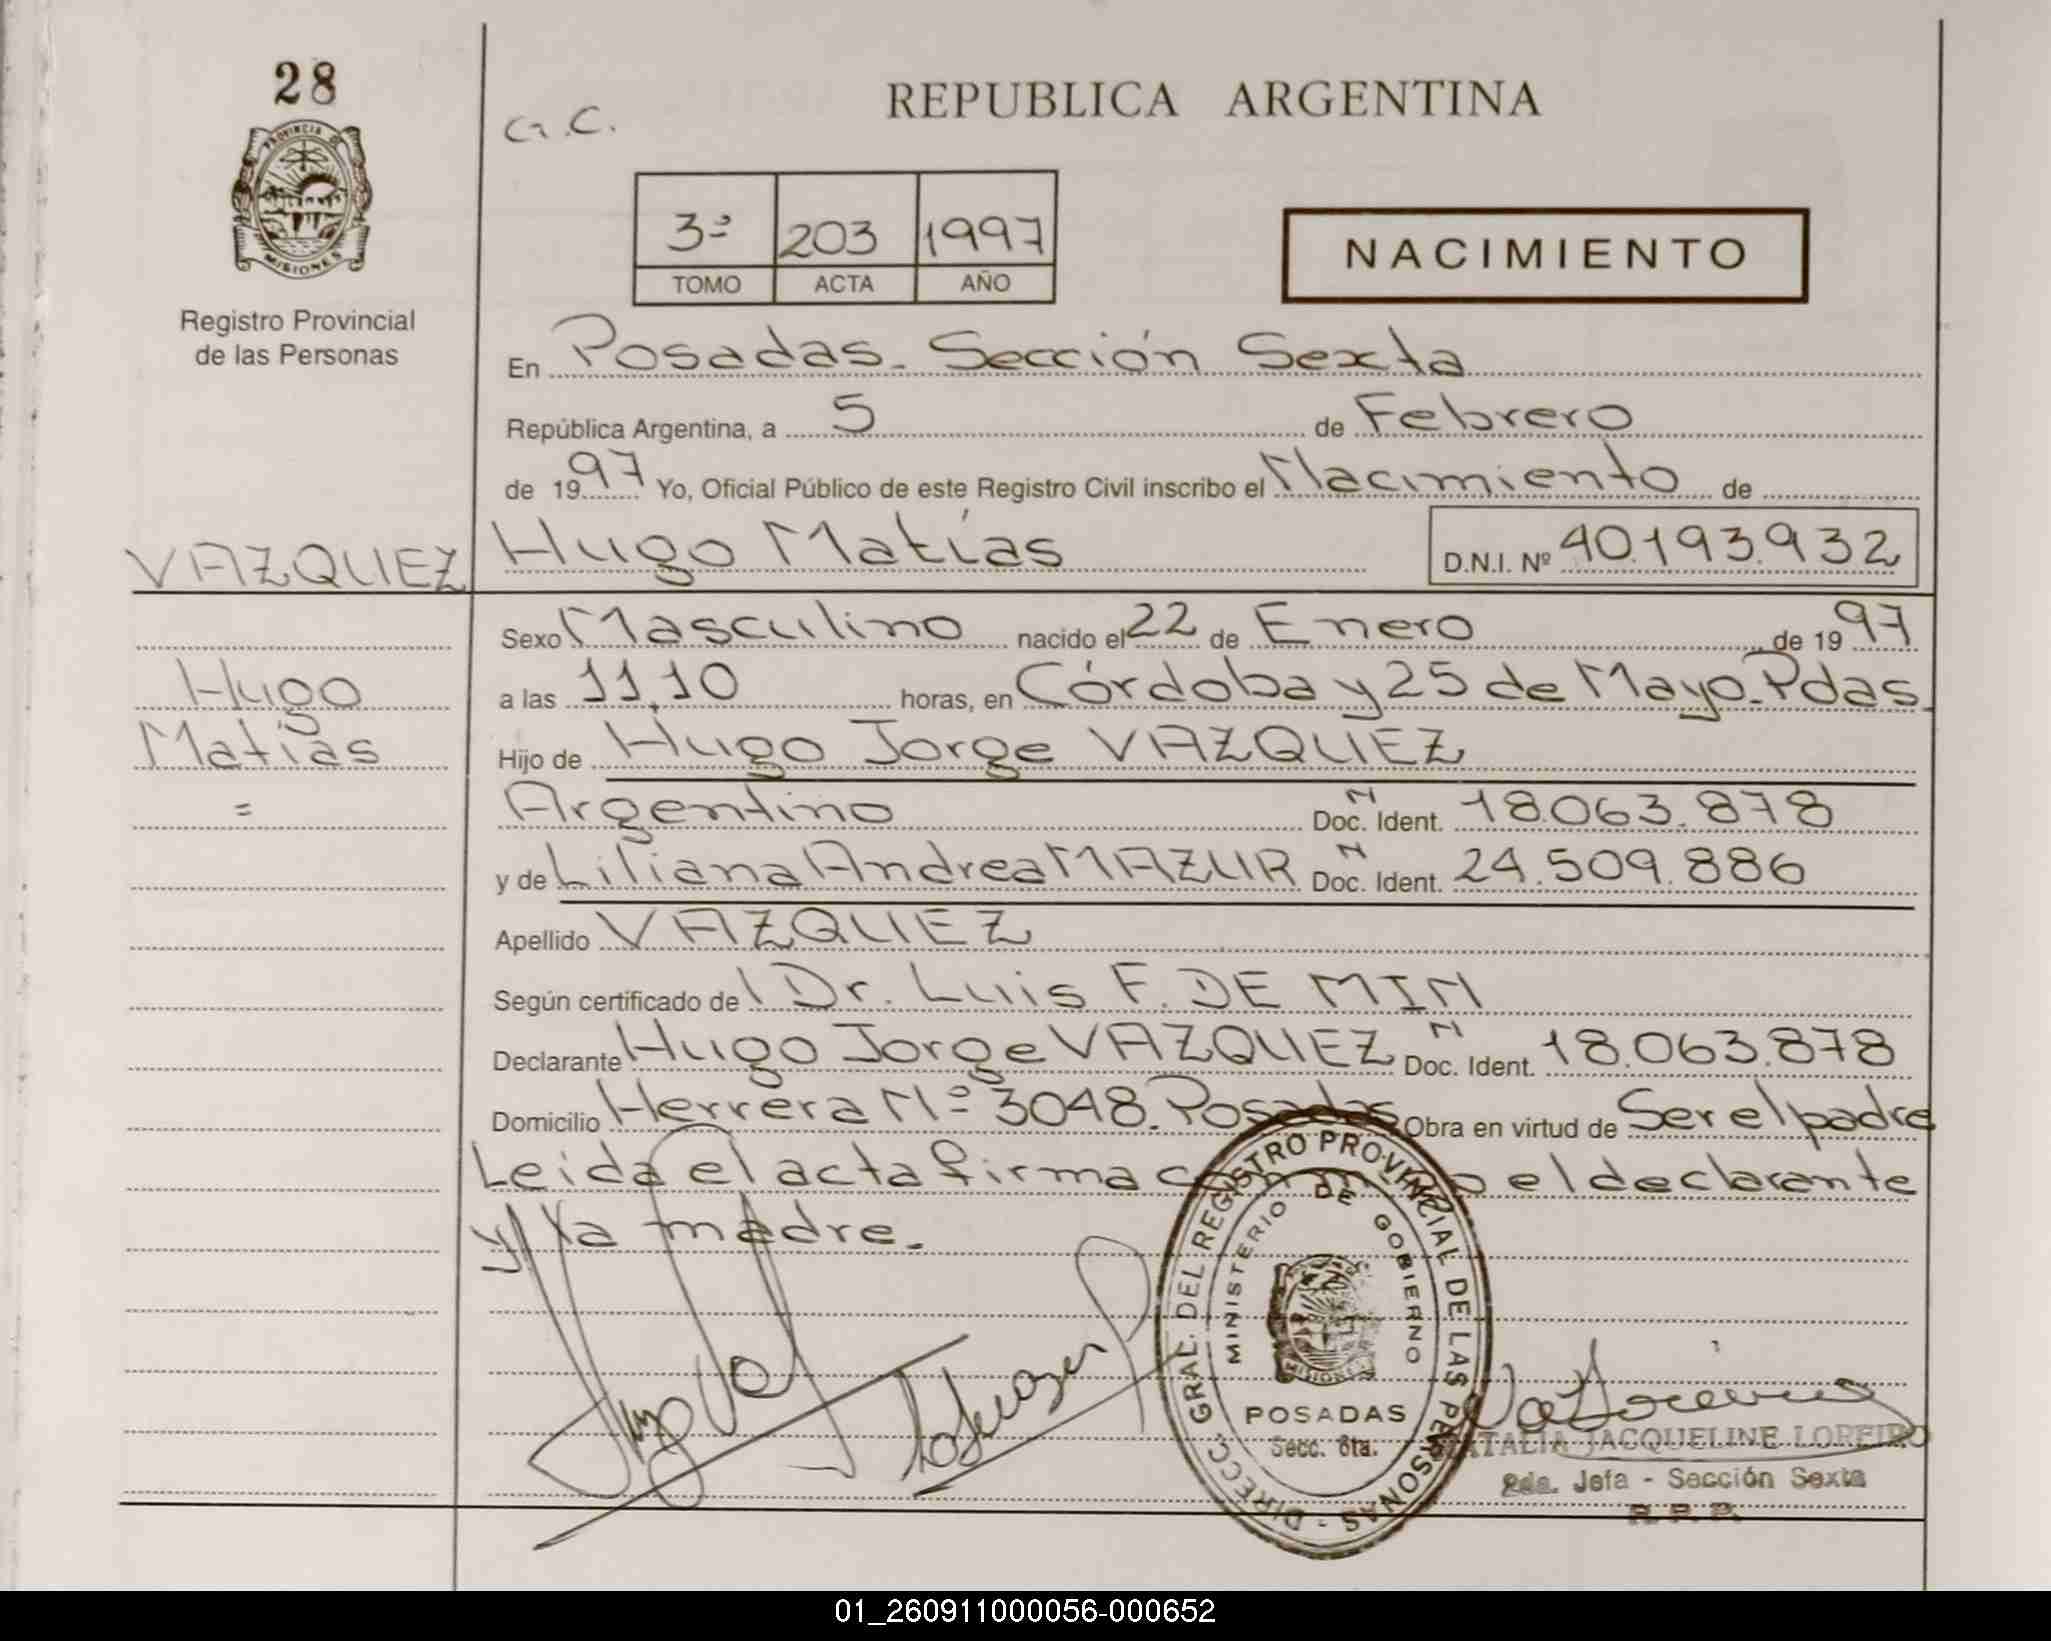 28
PROVINCIA DE
MISIONES
Registro Provincial
de las Personas
G.C.
REPUBLICA ARGENTINA
3º 203 1997
TOMO ACTA AÑO
NACIMIENTO
En Posadas. Sección Sexta
República Argentina, a 5 de Febrero
de 1997 Yo, Oficial Público de este Registro Civil inscribo el Nacimiento de
VAZQUEZ Hugo Matías D.N.I. Nº 40.193.932
Sexo Masculino nacido el 22 de Enero de 1997
Hugo a las 11,10 horas, en Córdoba y 25 de Mayo. Pdas.
Matías Hijo de Hugo Jorge VAZQUEZ
= Argentino Doc. N Ident. 18.063.878
y de Liliana Andrea MAZUR Doc. N Ident. 24.509.886
Apellido VAZQUEZ
Según certificado de l Dr. Luis F. DE MIN
Declarante Hugo Jorge VAZQUEZ Doc. N Ident. 18.063.878
Domicilio Herrera Nº 3048. Posadas Obra en virtud de Ser el padre
Leida el acta firma el declarante
y la madre.
DIRECC. GRAL. DEL REGISTRO PROVINCIAL DE LAS PERSONAS -
MINISTERIO DE GOBIERNO
MISIONES
POSADAS
Secc. 6ta.
NATALIA JACQUELINE LOREIRO
2da. Jefa - Sección Sexta
R. P. P.
01_260911000056-000652